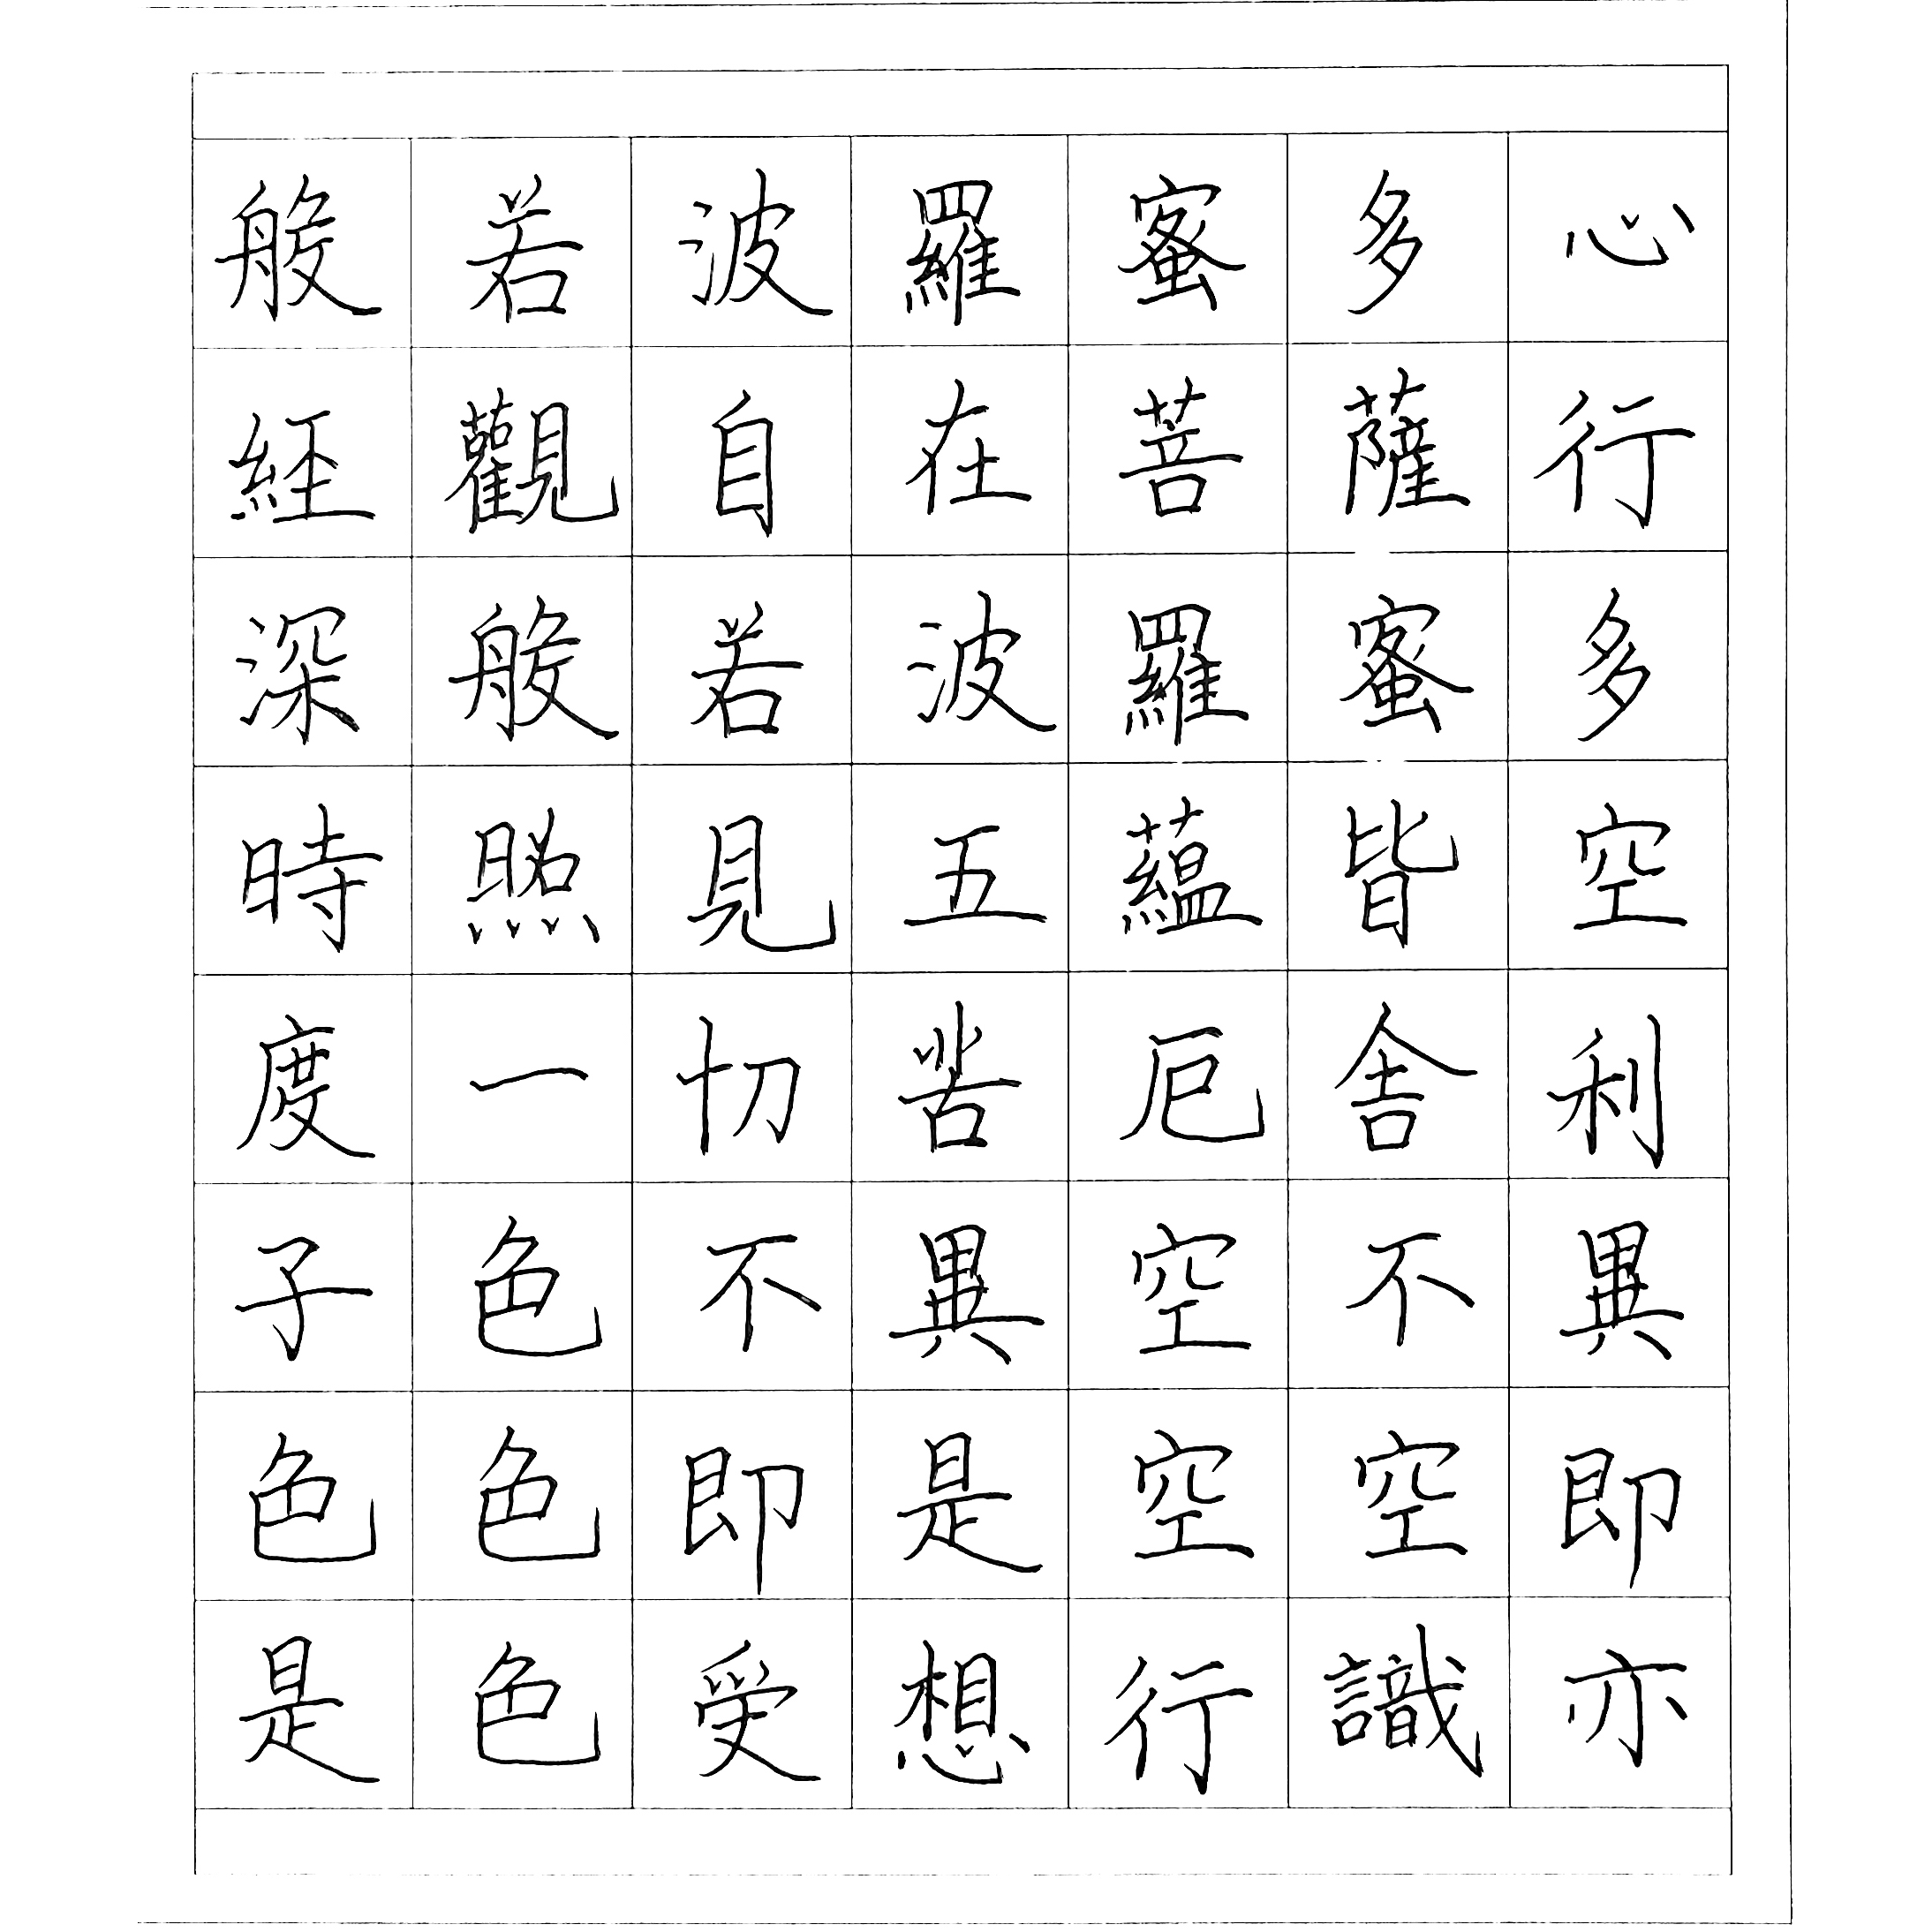 般若波羅蜜多心
経觀自在菩薩行
深般若波羅蜜多
時照見五蘊皆空
度一切苦厄舍利
子色不異空不異
色色即是空空即
是色受想行識亦